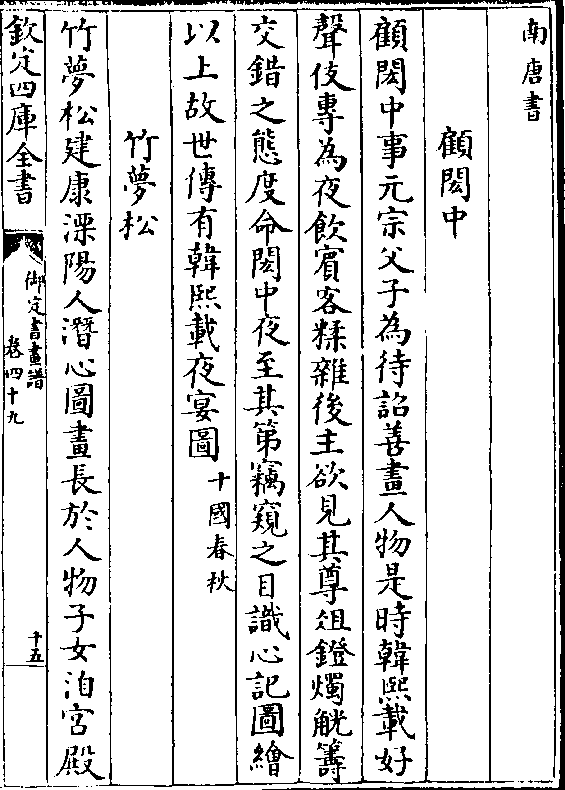 南唐書
顧閎中
顧閎中事元宗父子為待詔善畫人物是時韓熙載好
聲伎專為夜飲賓客糅雜後主欲見其尊俎鐙燭觥籌
交錯之態度命閎中夜至其第竊窺之目識心記圖繪
以上故世傳有韓熙載夜宴圖十國春秋
竹夢松
竹夢松建康溧陽人潛心圖畫長於人物子女洎宮殿
欽定四庫全書
御定書畫譜
卷四十九
十五